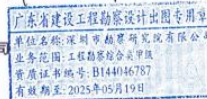 广东省建设工程勘察设计出图专用章
单位名称:深圳市勘察研究院有限公
业务范围:工程勘察综合类甲级
资质证书编号:B144046787
有效期至:2025年05月19日